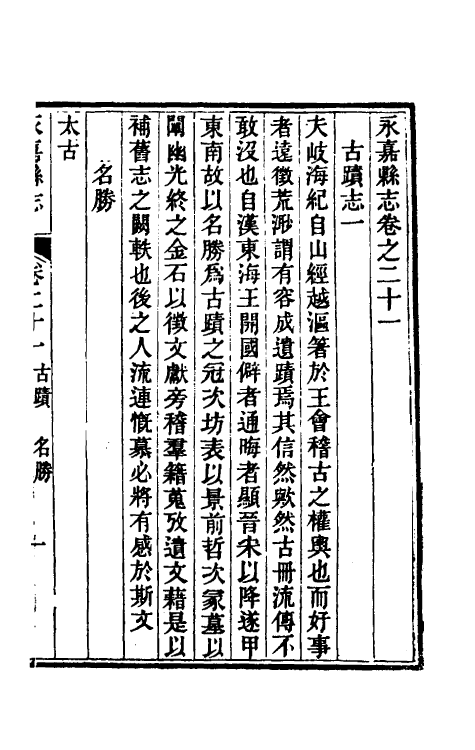 永嘉縣志卷之二十一
古蹟志一
夫岐海紀自山經越漚箸於王會稽古之權輿也而好事
者遠徵荒渺謂有容成遺蹟焉其信然歟然古冊流傳不
敢沒也自漢東海王開國僻者通晦者顯晉宋以降遂甲
東南故以名勝爲古蹟之冠次坊表以景前哲次冢墓以
闡幽光終之金石以徵文獻旁稽羣籍蒐攷遺文藉是以
補舊志之闕軼也後之人流連慨慕必將有感於斯文
名勝
太古
永嘉縣志 卷二十一 古蹟 名勝 一